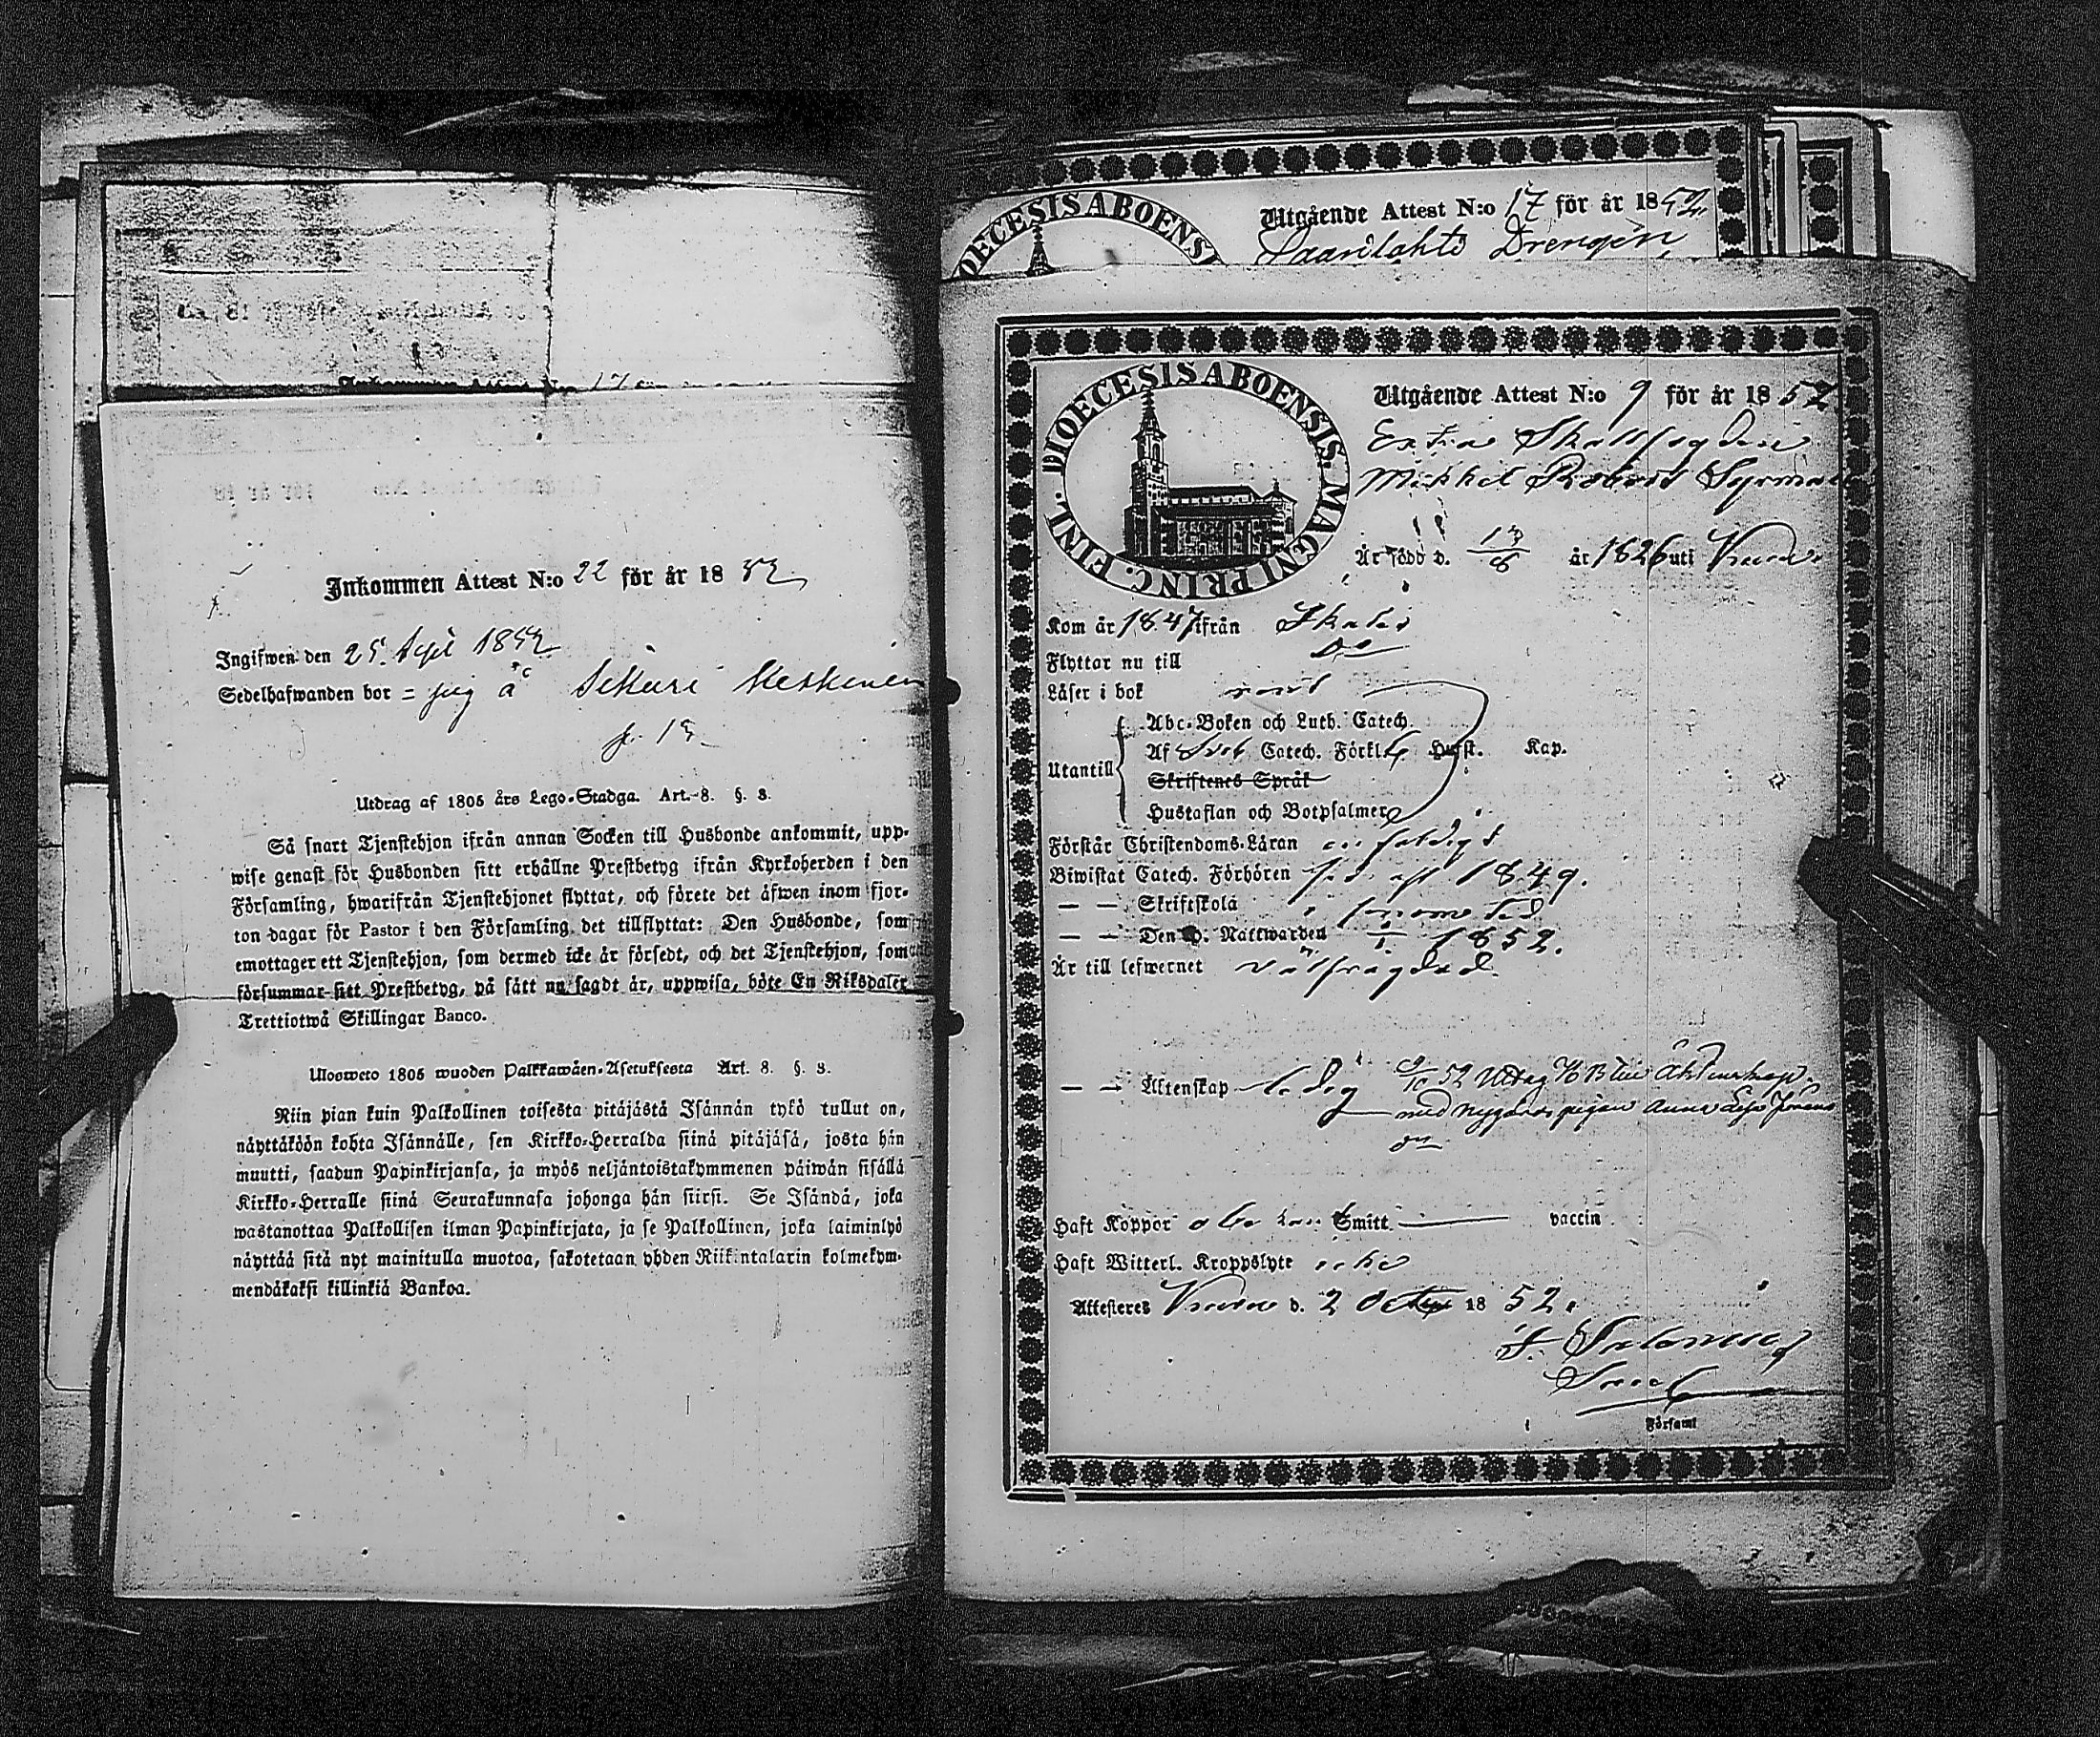 Inkommen Attest N:o 22 för år 18 52
Ingifwen den 25. Sept 1852
Sedelhafwanden bor = på
Utdrag af 1805 års Lego-Stadga. Art. 8. §. 8.
Så snart Tjenstehjon ifrån annan Socken till Husbonde ankommit, upp-
wise genast för Husbonden sitt erhållne Prestbetyg ifrån Kyrkoherden i den
Församling, hwarifrån Tjenstehjonet flyttat, och förete det äfwen inom fjor-
ton dagar för Pastor i den Församling det tillflyttat: Den Husbonde, som
emottager ett Tjenstehjon, som dermed icke är försedt, och det Tjenstehjon, som
försummar sitt Prestbetyg, på sätt nu sagdt är, uppwisa, böte En Riksdaler
Trettiotwå Skillingar Banco.
Ulosweto 1805 wuoden Palkkawäen-Asetuksesta Art. 8. §. 8.
Niin pian kuin Palkollinen toisesta pitäjästä Isännän tykö tullut on,
näyttäköön kohta Isännälle, sen Kirkko-Herralda siinä pitäjäsä, josta hän
muutti, saadun Papinkirjansa, ja myös neljäntoistakymmenen päiwän sisällä
Kirkko-Herralle siinä Seurakunnasa johonga hän siirsi. Se Isändä, joka
wastanottaa Palkollisen ilman Papinkirjata, ja se Palkollinen, joka laiminlyö
näyttää sitä nyt mainitulla muotoa, sakotetaan yhden Riikintalarin kolmekym-
mendäkaksi killinkiä Bankoa.
DIOECESIS ABOENS
Utgående Attest N:o 17 för år 1852.
Saarilahti Drengen
DIOECESIS ABOENSIS. MAGNI PRINC. FINL.
Utgående Attest N:o 9 för år 1852.
Extra Skallfogden
Mikkel Robert Syrman
Är född d. 13/8 år 1826 uti
Kom år 1847 ifrån
Flyttar nu till Do
Läser i bok
Utantill
Abc-Boken och Luth. Catech.
Af Sveb Catech. Förkl. Hufst. Kap.
Skriftenes Språk
Hustaflan och Botpsalmer
Förstår Christendoms-Läran enfaldigt
Biwistat Catech. Förhören 1849.
— — Skriftskola
— — Den H. Nattwarden 1852.
Är till lefwernet välfrägdad.
— — Äktenskap ledig 9/10 52 Uttag till Äktenskap
med pigan Anna
Haft Koppor Smitt. — vaccin
Haft Witterl. Kroppslyte icke
Attesteras d. 2 October 1852.
Församl